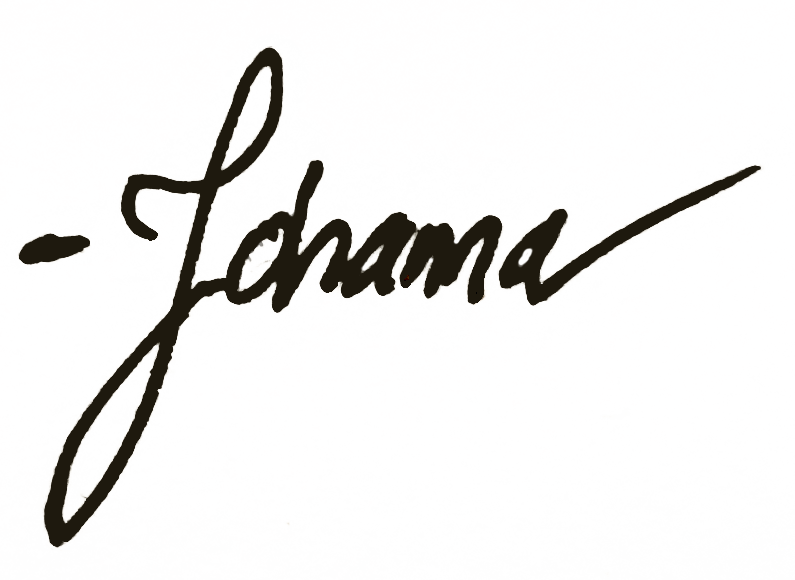 - Johanna